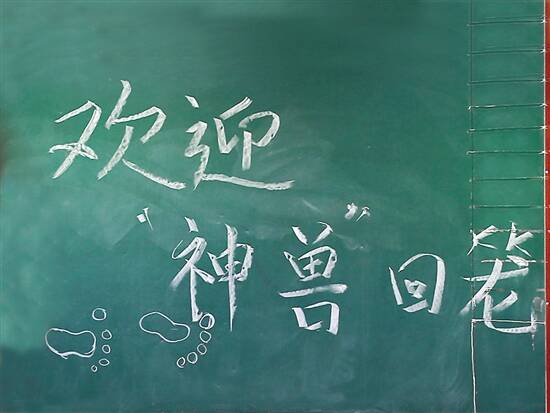 欢迎
“神兽”回笼